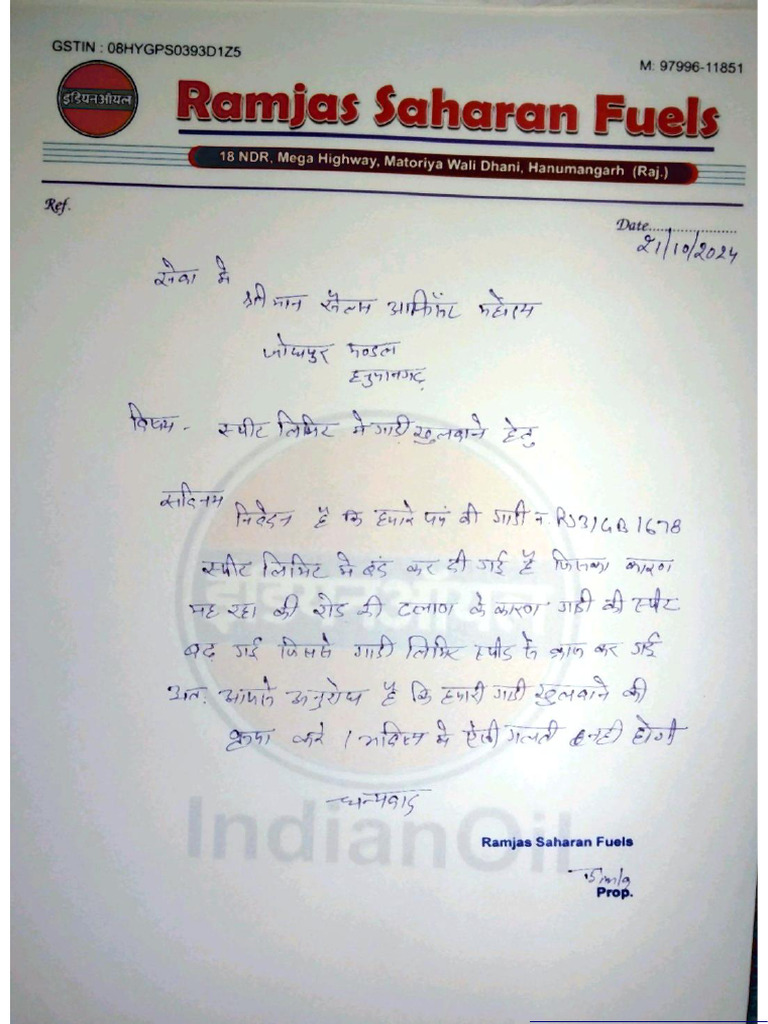 GSTIN : 08HYGPS0393D1Z5
M: 97996-11851
इंडियनऑयल
Ramjas Saharan Fuels
18 NDR, Mega Highway, Matoriya Wali Dhani, Hanumangarh (Raj.)
Ref.
Date....................
21/10/2024
सेवा में
श्री मान सैल्स आफिसर महोदय
जोधपुर मण्डल
हनुमानगढ़
विषय - स्पीट लिमिट मे गाडी खुलवाने हेतु
सविनय
निवेदन है कि हमारे पंप की गाडी न. RJ31GB1678
स्पीट लिमिट मे बंड कर दी गई है जिसका कारण
यह रहा की रोड की ढलाण के कारण गाडी की स्पीट
बढ गई जिससे गाडी लिमिट स्पीड के क्रास कर गई
अतः आपसे अनुरोध है कि हमारी गाडी खुलवाने की
कृपा करे । भविष्य मे ऐसी गलती नही होगी
धन्यवाद
इंडियनऑयल
IndianOil
Ramjas Saharan Fuels
Prop.